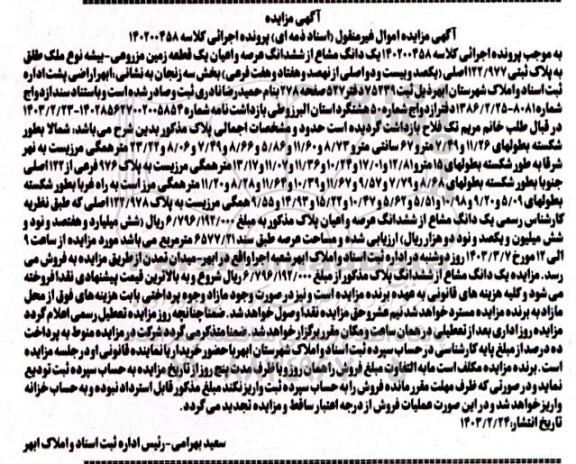 آگهی مزایده
آگهی مزایده اموال غیرمنقول (اسناد ذمه ای) پرونده اجرائی کلاسه ۱۴۰۲۰۰۴۵۸
به موجب پرونده اجرائی کلاسه ۱۴۰۲۰۰۴۵۸ یک دانگ مشاع از ششدانگ عرصه واعیان یک قطعه زمین مزروعی-بیشه نوع ملک طلق
به پلاک ثبتی ۱۲۲/۹۷۷اصلی (یکصد و بیست و دو اصلی از نهصد و هفتاد و هفت فرعی) بخش سه زنجان به نشانی:ابهر اراضی پشت اداره
ثبت اسناد و املاک شهرستان ابهر ذیل ثبت ۷۵۲۳۹ دفتر ۵۲۷ صفحه ۲۷۸ بنام حمیدرضا نادری ثبت و صادر شده است و باستناد سند ازدواج
شماره ۸۰۸۱-۱۳۸۶/۲/۲۵ دفتر ازدواج شماره ۵۰ هشتگرد استان البرز و طی بازداشت نامه شماره ۱۴۰۲۸۵۶۲۷۰۰۲۰۰۵۸۵۴-۱۴۰۳/۲/۲۳
در قبال طلب خانم مریم تک فلاح بازداشت گردیده است حدود و مشخصات اجمالی پلاک مذکور بدین شرح می باشد: شمالا بطور
شکسته بطولهای ۱۱/۲۶ و ۷/۴۹ متر و ۶۷ سانتی متر و ۸/۷۳ و ۱۱/۶۰ و ۵/۸۶ و ۸/۶۶ و ۷/۴۹ و ۸/۰۶ و ۲۳/۲۲ متر همگی مرزیست به نهر
شرقا به طور شکسته بطولهای ۱۵ متر و ۱۲/۸۱ و ۱۷/۰۱ و ۱۰/۲۴ و ۱۱/۰۷ و ۱۱/۳۶ و ۱۳/۱۷ متر همگی مرزیست به پلاک ۹۷۶ فرعی از ۱۲۲ اصلی
جنوبا بطور شکسته بطولهای ۸/۶۸ و ۷/۷۹ و ۹/۵۷ و ۱۱/۶۷ و ۱۰/۳۹ و ۱۱/۶۲ و ۸/۲۸ و ۱۱/۲۰ متر همگی مرز است به راه غربا بطور شکسته
بطولهای ۵/۰۹ و ۹/۲۰ و ۱۰/۹۸ و ۵/۵۱ و ۱۰/۶۲ و ۵/۴۷ و ۱۵/۲۲ و ۱۴/۹۳ و ۹/۵۵ همگی مرزیست به پلاک ۱۲۲/۹۷۸ اصلی که طبق نظریه
کارشناس رسمی یک دانگ مشاع از ششدانگ عرصه و اعیان پلاک مذکور به مبلغ ۶/۷۹۶/۱۹۲/۰۰۰ ریال (شش میلیارد و هفتصد و نود و
شش میلیون و یکصد و نود دو هزار ریال) ارزیابی شده و مساحت عرصه طبق سند ۶۵۷۷/۲۱ مترمربع می باشد مورد مزایده از ساعت ۹
الی ۱۲ مورخ ۱۴۰۳/۳/۷ روز دوشنبه در اداره ثبت اسناد و املاک ابهر شعبه اجرا واقع در ابهر-میدان تمدن از طریق مزایده به فروش می
رسد. مزایده یک دانگ مشاع از ششدانگ پلاک مذکور از مبلغ ۶/۷۹۶/۱۹۲/۰۰۰ ریال شروع و به بالاترین قیمت پیشنهادی نقدا فروخته
می شود و کلیه هزینه های قانونی به عهده برنده مزایده است و نیز در صورت وجود مازاد وجوه پرداختی بابت هزینه های فوق از محل
مازاد به برنده مزایده مسترد خواهد شد نیم عشر و حق مزایده نقدا وصول خواهد شد. ضمنا چنانچه روز مزایده تعطیل رسمی اعلام گردد
مزایده روز اداری بعد از تعطیلی در همان ساعت و مکان مقرر برگزار خواهد شد. ضمنا متذکر می گردد شرکت در مزایده منوط به پرداخت
ده درصد از مبلغ پایه کارشناسی در حساب سپرده ثبت اسناد و املاک شهرستان ابهر با حضور خریدار یا نماینده قانونی او در جلسه مزایده
است. برنده مزایده مکلف است مابه التفاوت مبلغ فروش را همان روز و یا ظرف مدت پنج روز از تاریخ مزایده به حساب سپرده ثبت تودیع
نماید و در صورتی که ظرف مهلت مقرر مانده فروش را به حساب سپرده ثبت واریز نکند مبلغ مذکور قابل استرداد نبوده و به حساب خزانه
واریز خواهد شد و در این صورت عملیات فروش از درجه اعتبار ساقط و مزایده تجدید می گردد.
تاریخ انتشار:۱۴۰۳/۲/۲۴
سعید بهرامی-رئیس اداره ثبت اسناد و املاک ابهر